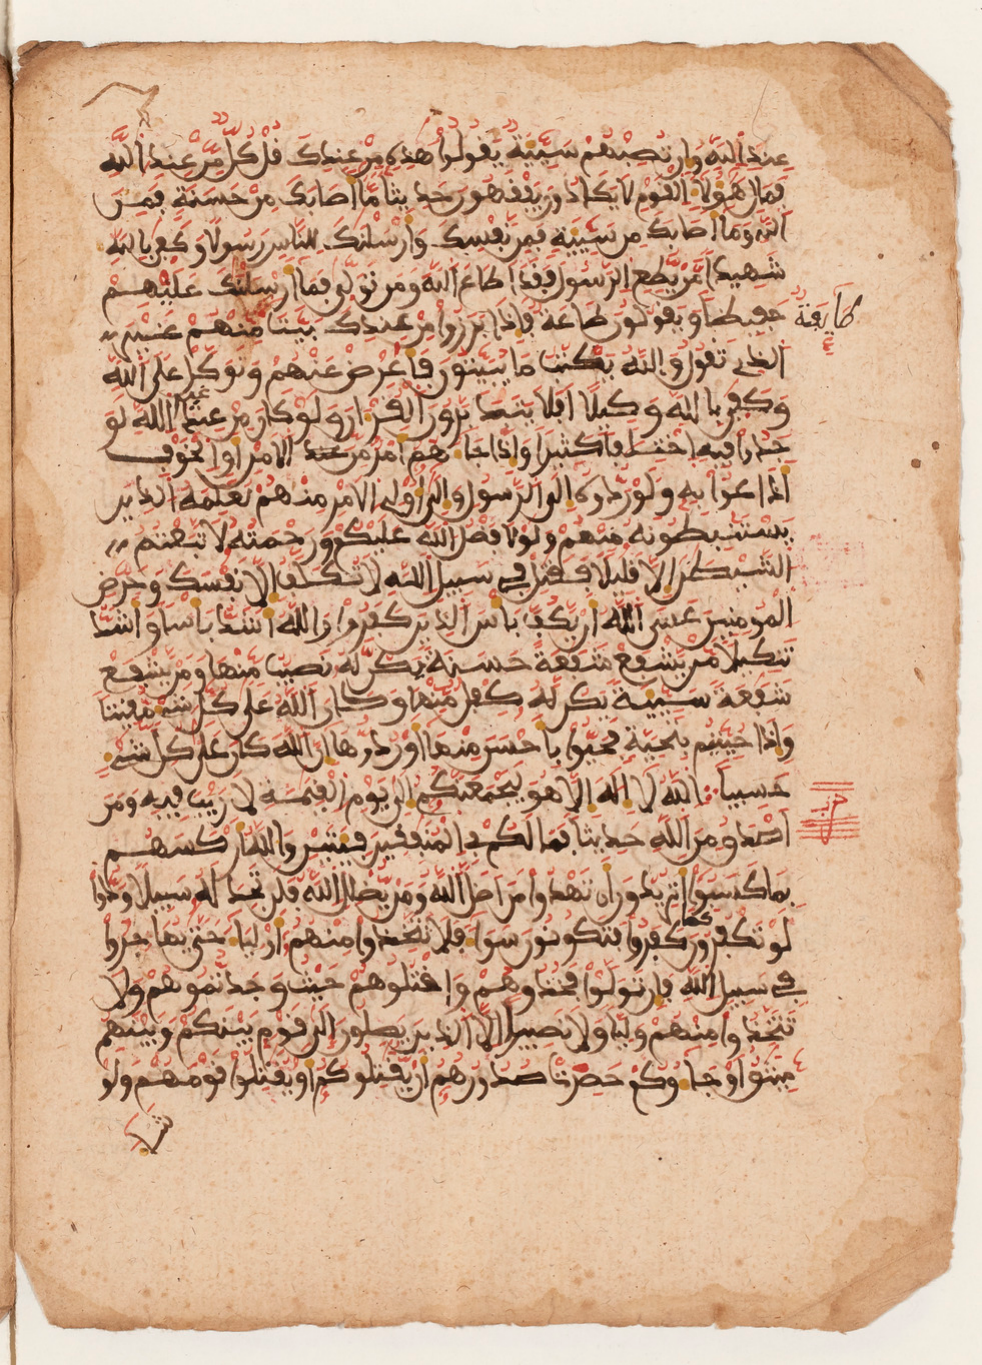 عِندِ اللَّهِ وَإِن تُصِبْهُمْ سَيِّئَةٌ يَقُولُوا هَذِهِ مِنْ عِندِكَ قُلْ كُلٌّ مِّنْ عِندِ اللَّهِ
فَمَالِ هَؤُلَاءِ الْقَوْمِ لَا يَكَادُونَ يَفْقَهُونَ حَدِيثًا مَّا أَصَابَكَ مِنْ حَسَنَةٍ فَمِنَ
اللَّهِ وَمَا أَصَابَكَ مِن سَيِّئَةٍ فَمِن نَّفْسِكَ وَأَرْسَلْنَكَ لِلنَّاسِ رَسُولًا وَكَفَى بِاللَّهِ
شَهِيدًا مَّنْ يُّطِعِ الرَّسُولَ فَقَدْ أَطَاعَ اللَّهَ وَمَن تَوَلَّى فَمَا أَرْسَلْنَكَ عَلَيْهِمْ
حَفِيظًا وَيَقُولُونَ طَاعَةٌ فَإِذَا بَرَزُوا مِنْ عِندِكَ بَيَّتَ مِنْهُمْ غَيْرَ
طَائِفَةٌ
الَّذِي تَقُولُ وَاللَّهُ يَكْتُبُ مَا يُبَيِّتُونَ فَأَعْرِضْ عَنْهُمْ وَتَوَكَّلْ عَلَى اللَّهِ
وَكَفَى بِاللَّهِ وَكِيلًا أَفَلَا يَتَدَبَّرُونَ الْقُرْءَانَ وَلَوْ كَانَ مِنْ عِندِ غَيْرِ اللَّهِ لَوَ
جَدُوا فِيهِ اخْتِلَفًا كَثِيرًا وَإِذَا جَاءَهُمْ أَمْرٌ مِّنَ الَامْنِ أَوِ الْخَوْفِ
أَذَاعُوا بِهِ وَلَوْ رَدُّوهُ إِلَى الرَّسُولِ وَإِلَى أُولِي الَامْرِ مِنْهُمْ لَعَلِمَهُ الَّذِينَ
يَسْتَنبِطُونَهُ مِنْهُمْ وَلَوْلَا فَضْلُ اللَّهِ عَلَيْكُمْ وَرَحْمَتُهُ لَاتَّبَعْتُمُ
الشَّيْطَنَ إِلَّا قَلِيلًا فَقَتِلْ فِي سَبِيلِ اللَّهِ لَا تُكَلَّفُ إِلَّا نَفْسَكَ وَحَرِّضِ
الْمُومِنِينَ عَسَى اللَّهُ أَنْ يَّكُفَّ بَأْسَ الَّذِينَ كَفَرُوا وَاللَّهُ أَشَدُّ بَأْسًا وَأَشَدُّ
تَنكِيلًا مَّنْ يَّشْفَعْ شَفَعَةً حَسَنَةً يَكُن لَّهُ نَصِيبٌ مِّنْهَا وَمَنْ يَّشْفَعْ
شَفَعَةً سَيِّئَةً يَكُن لَّهُ كِفْلٌ مِّنْهَا وَكَانَ اللَّهُ عَلَى كُلِّ شَيْءٍ مُّقِيتًا
وَإِذَا حُيِّيتُم بِتَحِيَّةٍ فَحَيُّوا بِأَحْسَنَ مِنْهَا أَوْ رُدُّوهَا إِنَّ اللَّهَ كَانَ عَلَى كُلِّ شَيْءٍ
حَسِيبًا اللَّهُ لَا إِلَهَ إِلَّا هُوَ لَيَجْمَعَنَّكُمْ إِلَى يَوْمِ الْقِيَمَةِ لَا رَيْبَ فِيهِ وَمَنَ
اَصْدَقُ مِنَ اللَّهِ حَدِيثًا فَمَا لَكُمْ فِي الْمُنَفِقِينَ فِئَتَيْنِ وَاللَّهُ أَرْكَسَهُم
بِمَا كَسَبُوا أَتُرِيدُونَ أَن تَهْدُوا مَنَ اَضَلَّ اللَّهُ وَمَنْ يُّضْلِلِ اللَّهُ فَلَن تَجِدَ لَهُ سَبِيلًا وَدُّوا
لَوْ تَكْفُرُونَ كَمَا كَفَرُوا فَتَكُونُونَ سَوَاءً فَلَا تَتَّخِذُوا مِنْهُمُ أَوْلِيَاءَ حَتَّى يُهَاجِرُوا
فِي سَبِيلِ اللَّهِ فَإِن تَوَلَّوْا فَخُذُوهُمْ وَاقْتُلُوهُمْ حَيْثُ وَجَدتُّمُوهُمْ وَلَا
تَتَّخِذُوا مِنْهُمْ وَلِيًّا وَلَا نَصِيرًا إِلَّا الَّذِينَ يَصِلُونَ إِلَى قَوْمٍ بَيْنَكُمْ وَبَيْنَهُم
مِّيثَقٌ أَوْ جَاءُوكُمْ حَصِرَتْ صُدُورُهُمُ أَنْ يُّقَتِلُوكُمُ أَوْ يُقَتِلُوا قَوْمَهُمْ وَلَوْ
شَاءَ